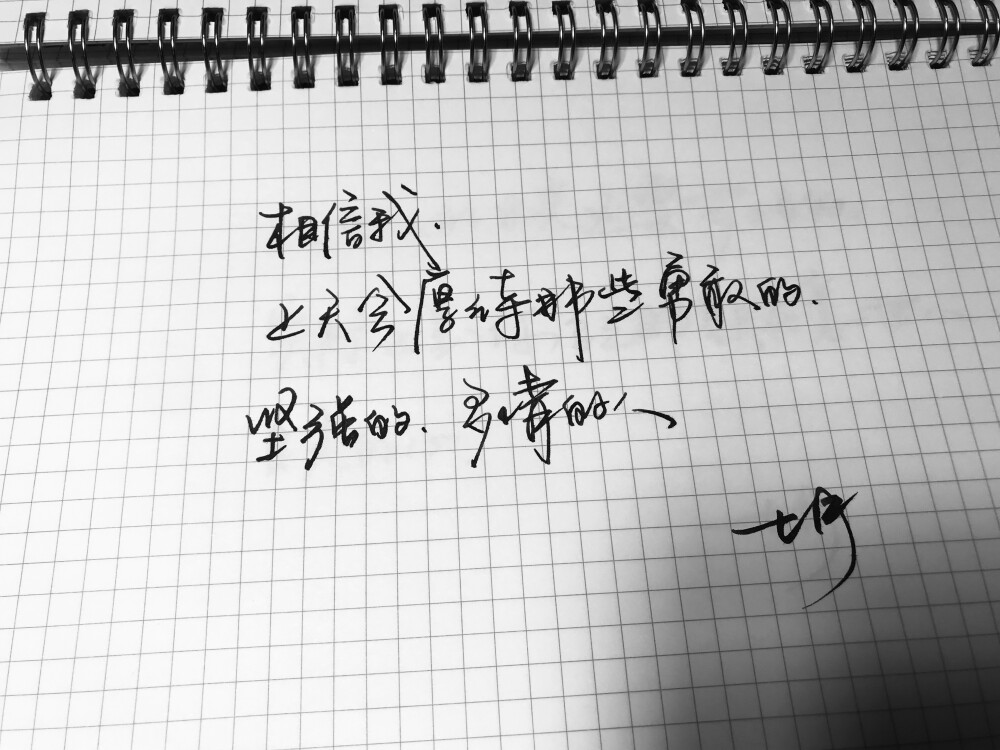 相信我.
上天会厚待那些勇敢的.
坚强的. 多情的人
七月